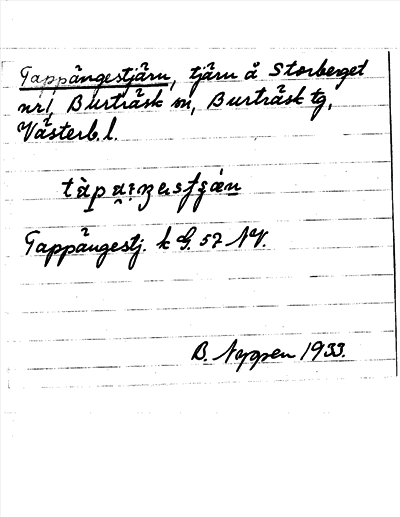 Tappängestjärn, tjärn å Storberget
nr 1, Burträsk sn, Burträsk tg,
Västerb. l.
Tappängestj. k G. 57 NV.
B. Nygren 1933.